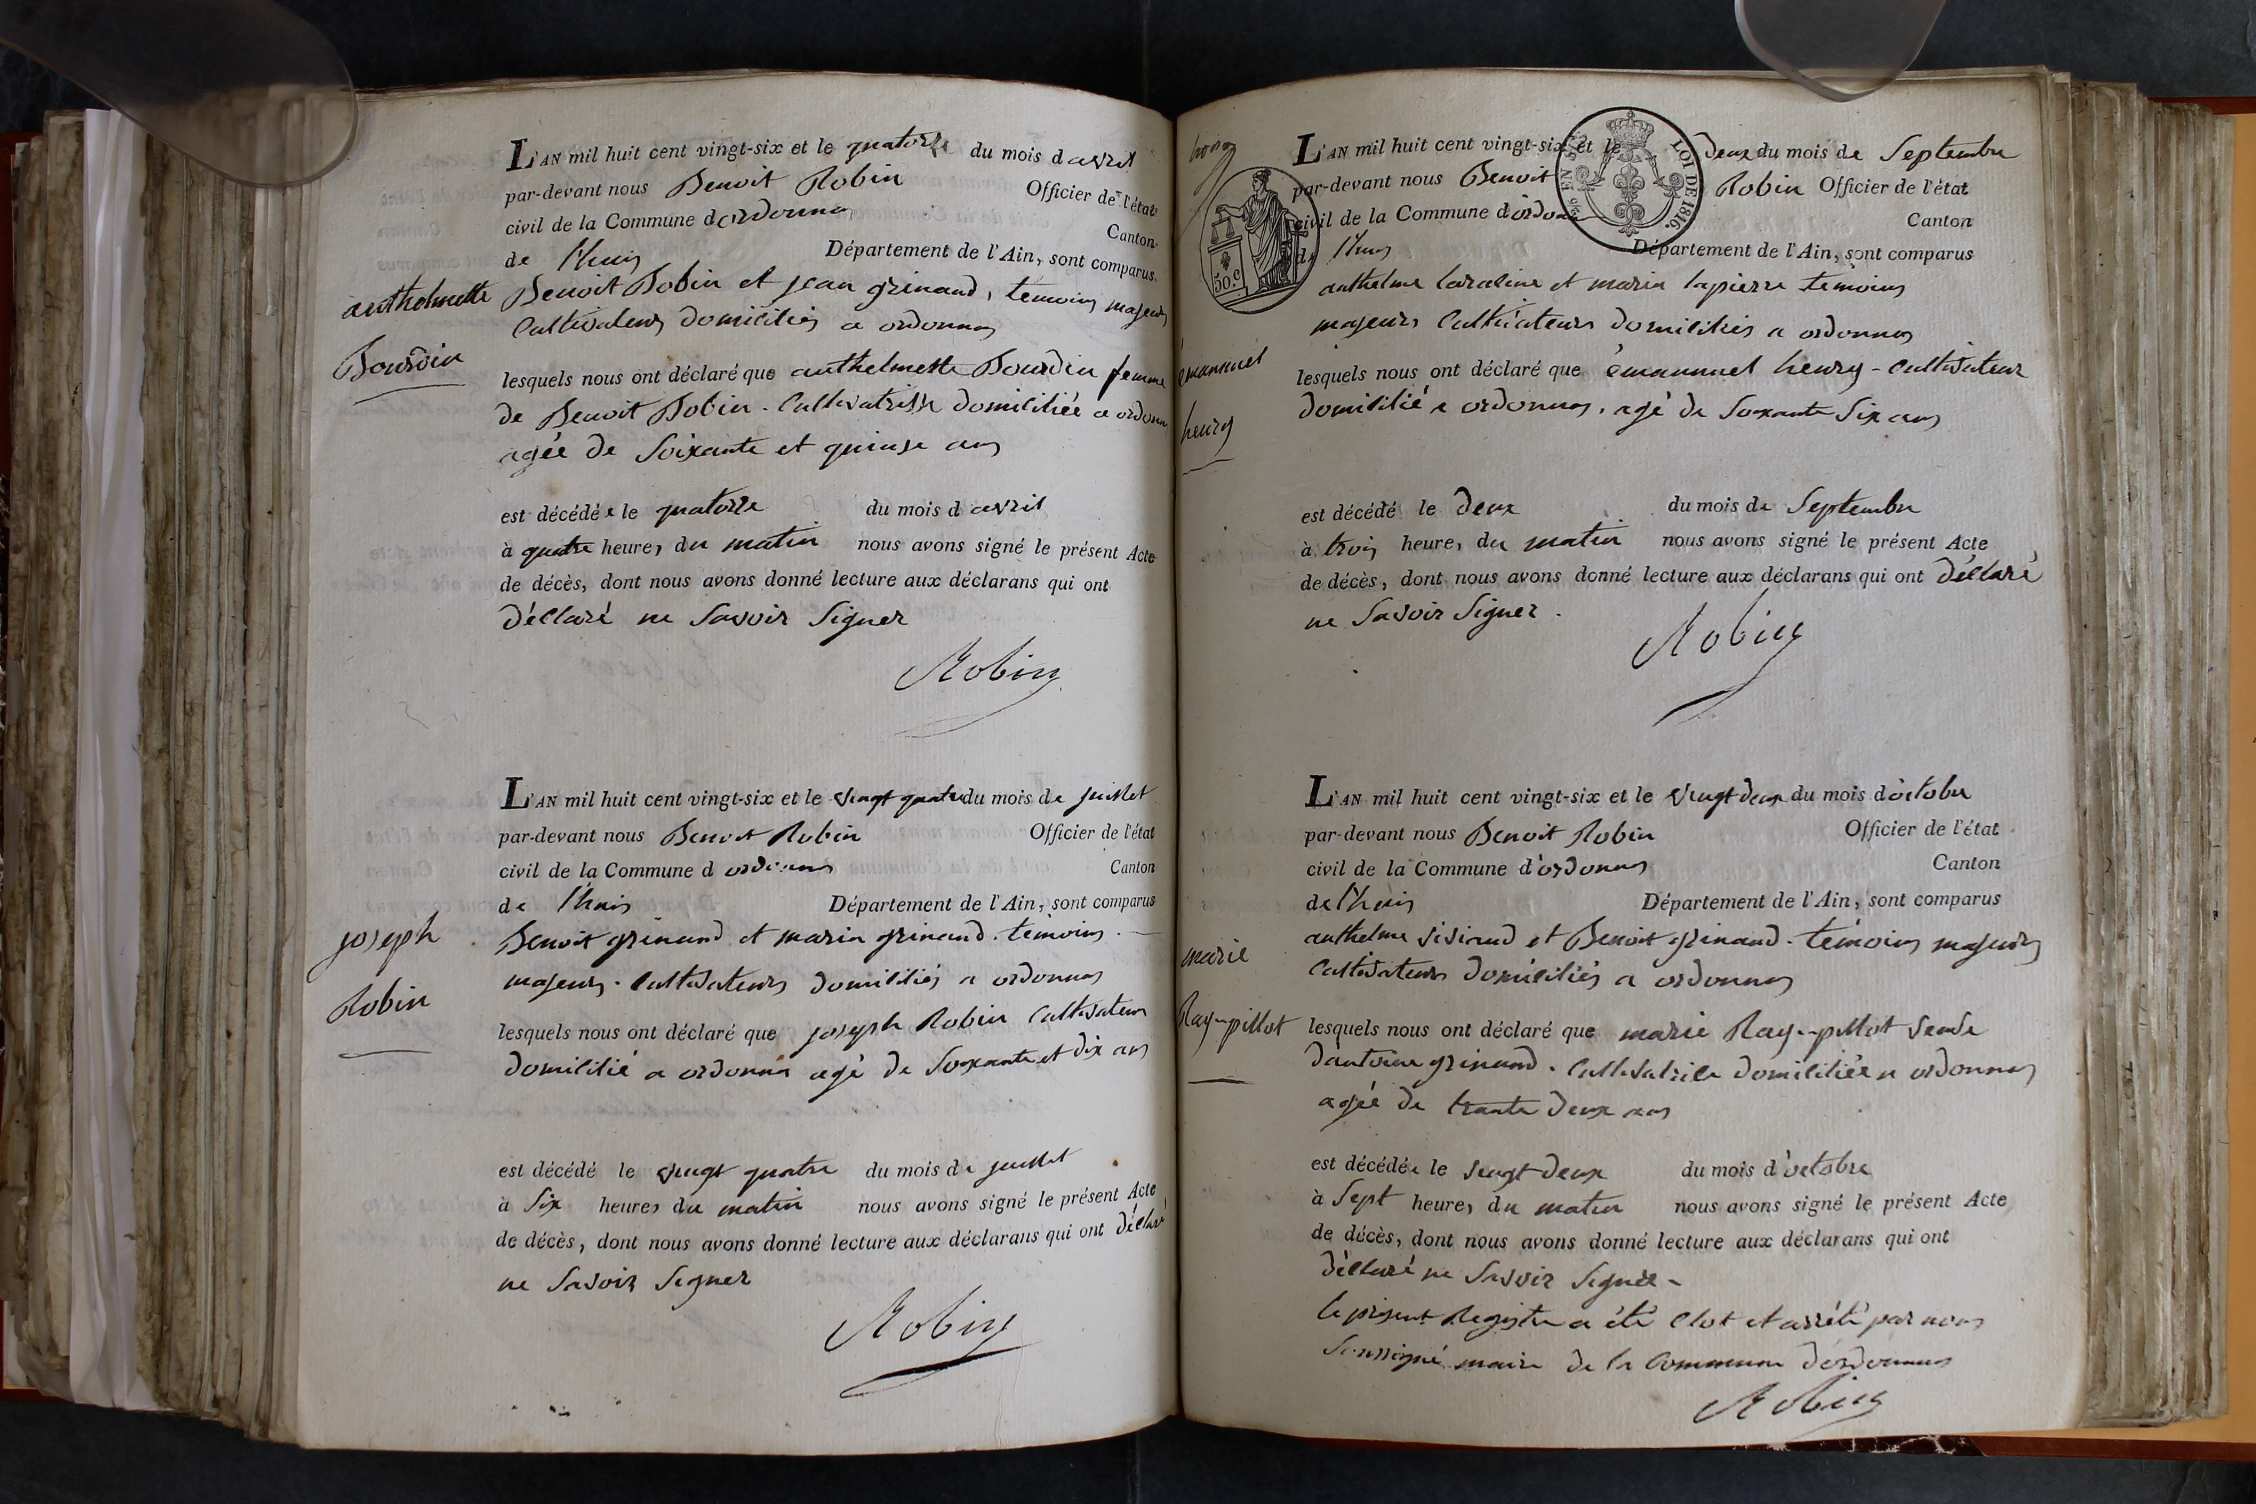 L'AN mil huit cent vingt-six et le quatorze du mois d avril
par-devant nous Benoit Robin Officier de l'état
civil de la Commune d ordonnas Canton
de l'huis Département de l'Ain, sont comparus
Benoit Robin et jean grinand, temoins majeurs
Cultivateurs domiciliés a ordonnas
anthelmette
Bourdin
lesquels nous ont déclaré que anthelmette Bourdin femme
de Benoit Robin. Cultivatrisse domiciliée a ordonn
agée de Soixante et quinse ans
est décédée le quatorze du mois d avril
à quatre heures du matin nous avons signé le présent Acte
de décès, dont nous avons donné lecture aux déclarans qui ont
déclaré ne Savoir Signer
Robin
L'AN mil huit cent vingt-six et le vingt quatre du mois de juillet
par-devant nous Benoit Robin Officier de l'état
civil de la Commune d ordonnas Canton
de l'huis Département de l'Ain, sont comparus
Benoit grinand et marin grinand. témoins
majeurs. Cultivateurs domiciliés a ordonnas
joseph
Robin
lesquels nous ont déclaré que joseph Robin Cultivateur
domicilié a ordonnas agé de Soxante et dix ans
est décédé le vingt quatre du mois de juillet
à Six heures du matin nous avons signé le présent Acte
de décès, dont nous avons donné lecture aux déclarans qui ont déclaré
ne Savoir Signer
Robin
L'AN mil huit cent vingt-six et le deux du mois de Septembre
par-devant nous Benoit Robin Officier de l'état
civil de la Commune d'ordonnas Canton
de l'huis Département de l'Ain, sont comparus
LOI DE 1816.
50.c
anthelme et marin lapierre témoins
majeurs Cultivateurs domiciliés a ordonnas
émanuel
henry
lesquels nous ont déclaré que émannuel henry - Cultivateur
domicilié a ordonnas, agé de Soxante Six ans
est décédé le deux du mois de Septembre
à trois heures du matin nous avons signé le présent Acte
de décès, dont nous avons donné lecture aux déclarans qui ont déclaré
ne Savoir Signer.
Robin
L'AN mil huit cent vingt-six et le vingt deux du mois d'octobre
par-devant nous Benoit Robin Officier de l'état
civil de la Commune d'ordonnas Canton
de l'huis Département de l'Ain, sont comparus
anthelme et Benoit grinand. témoins majeurs
Cultivateurs domiciliés a ordonnas
marie
Ray-pillot
lesquels nous ont déclaré que marie Ray-pillot veuve
d'antoine grinand. Cultivatrice domiciliée a ordonnas
agée de trante deux ans
est décédée le vingt deux du mois d'octobre
à Sept heures du matin nous avons signé le présent Acte
de décès, dont nous avons donné lecture aux déclarans qui ont
déclaré ne Savoir Signer -
le présent Registre a été Clot et arrêté par nous
Soussigné maire de la Commune d'ordonnas
Robin